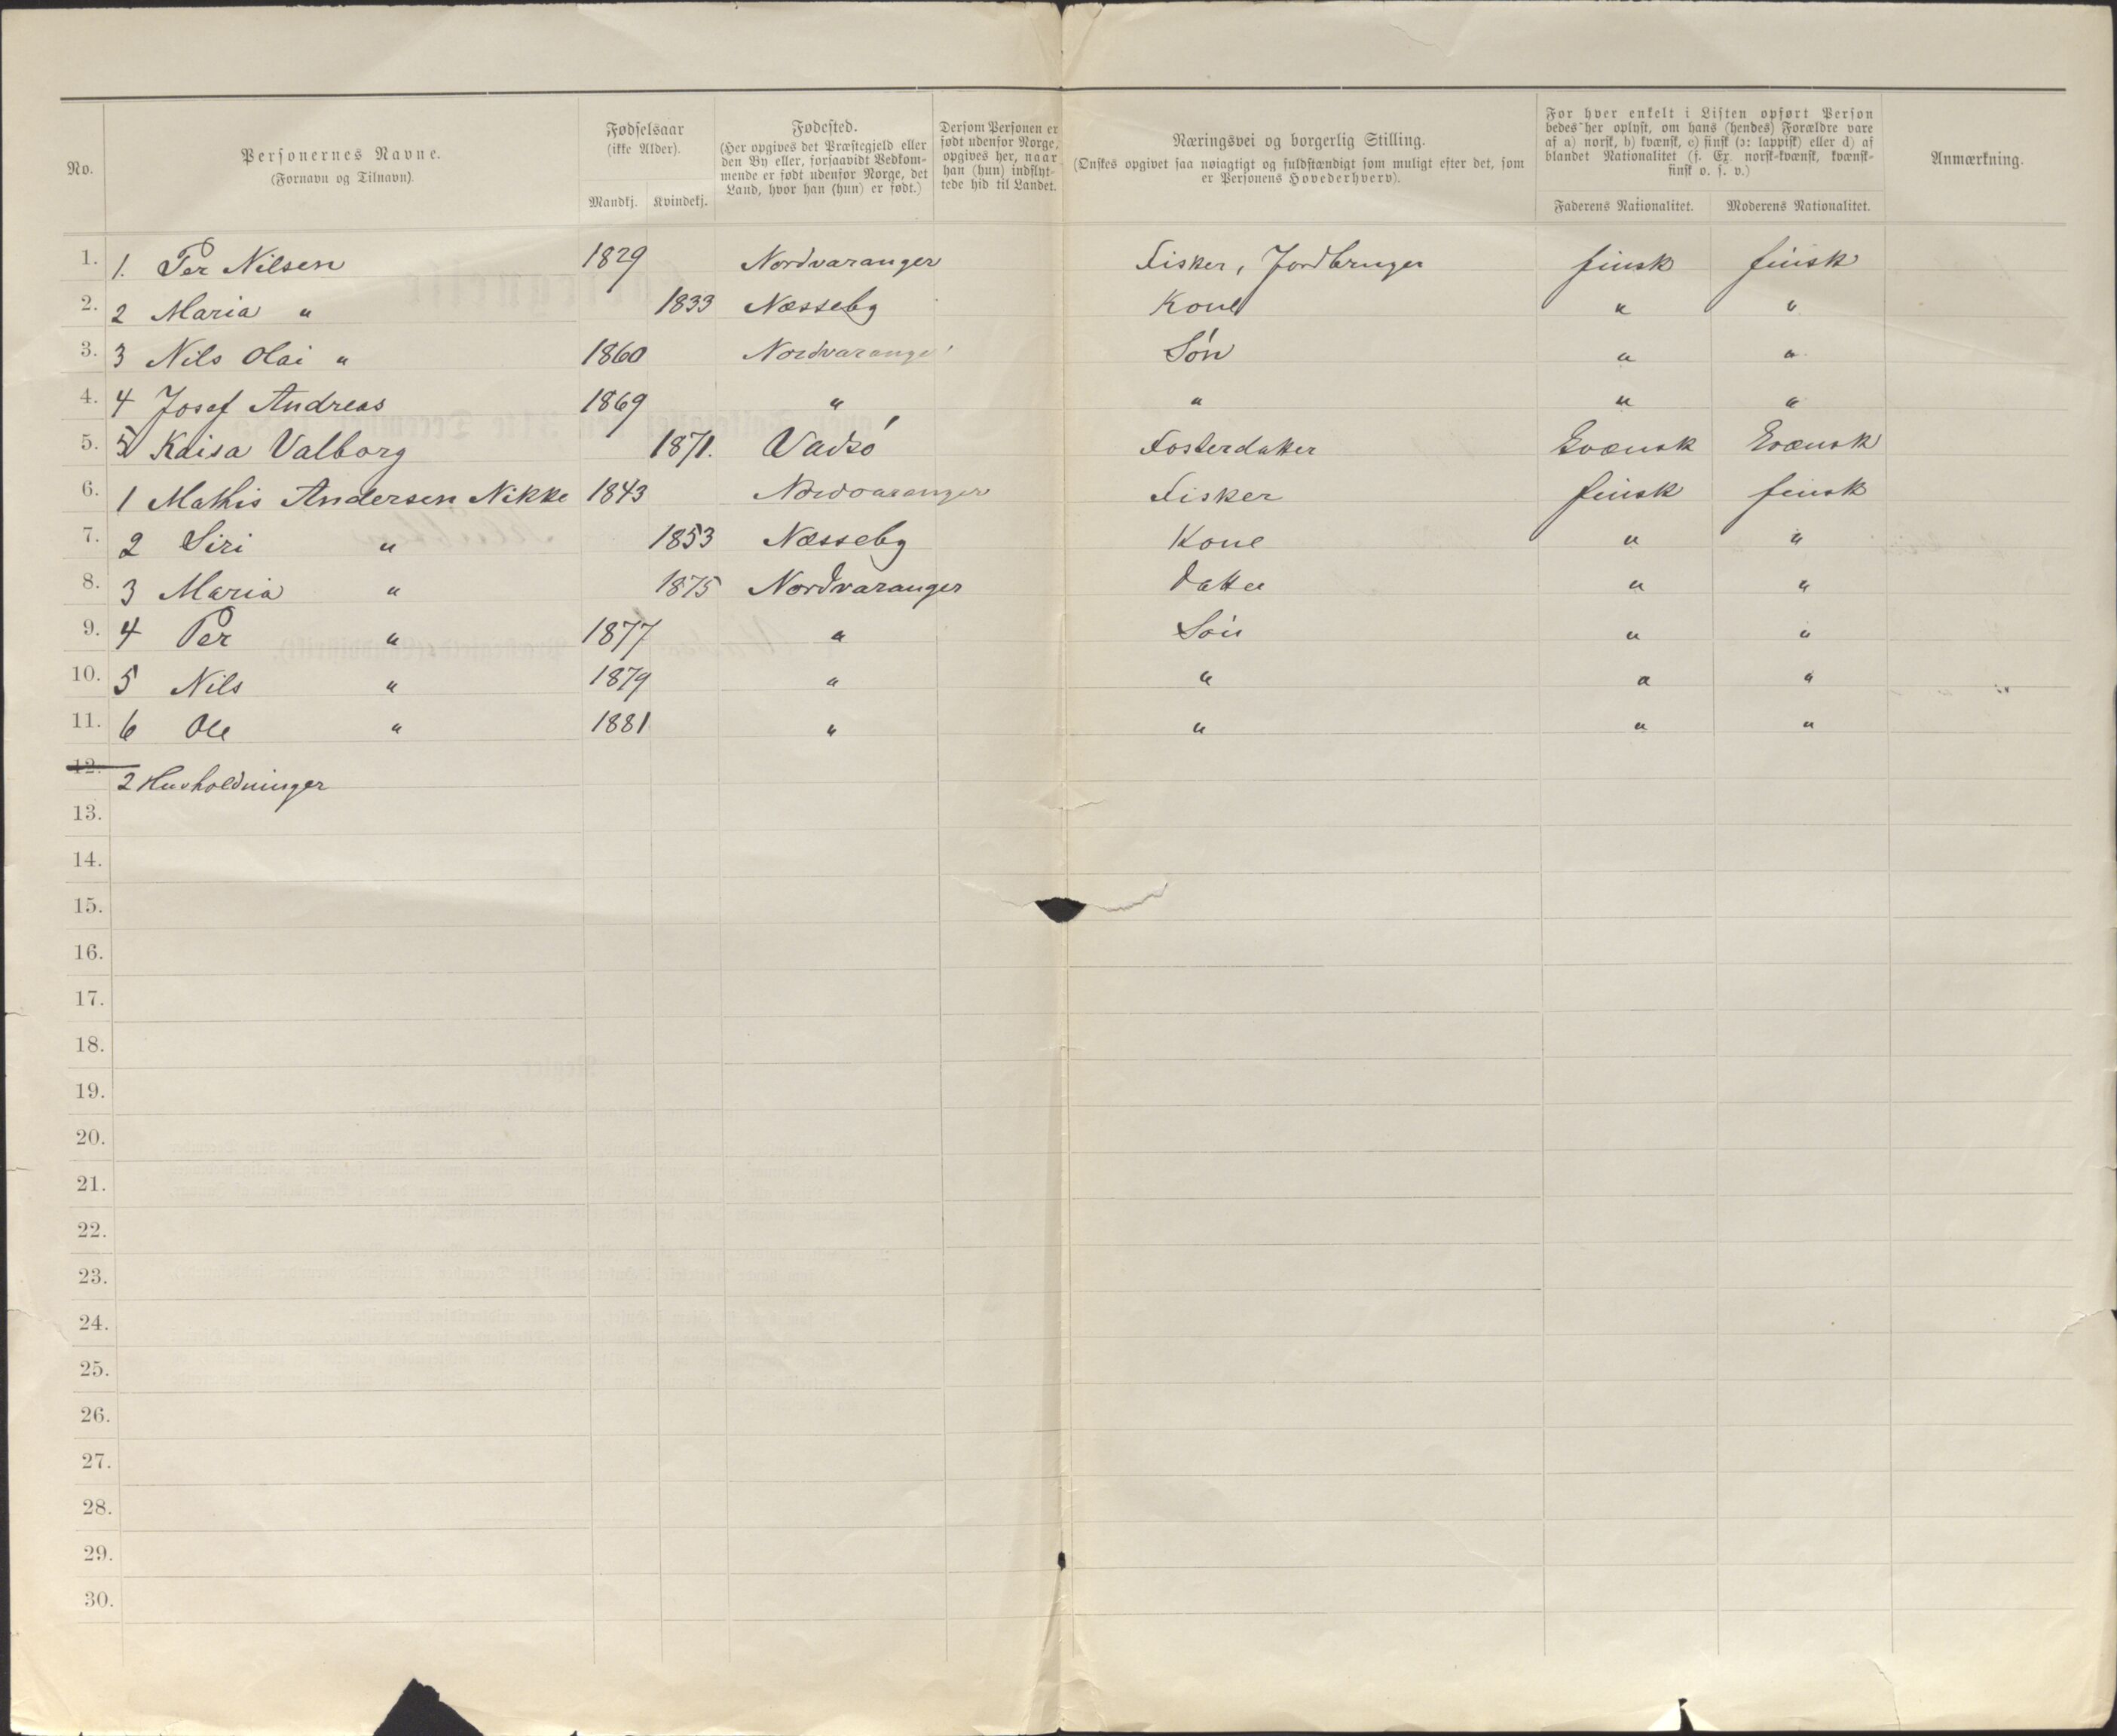 No.
Personernes Navne.
(Fornavn og Tilnavn).
Fødselsaar
(ikke Alder).
Mandkj. Kvindekj.
Fødested.
(Her opgives det Præstegjeld eller
den By eller, forsaavidt Vedkom-
mende er født udenfor Norge, det
Land, hvor han (hun) er født.)
Dersom Personen er
født udenfor Norge,
opgives her, naar
han (hun) indflyt-
tede hid til Landet.
Næringsvei og borgerlig Stilling.
(Ønskes opgivet saa nøiagtigt og fuldstændigt som muligt efter det, som
er Personens Hovederhverv).
For hver enkelt i Listen opført Person
bedes her oplyst, om hans (hendes) Forældre vare
af a) norsk, b) kvænsk, c) finsk (ɔ: lappisk) eller d) af
blandet Nationalitet (f. Ex. norsk-kvænsk, kvænsk-
finsk o. s. v.)
Faderens Nationalitet. Moderens Nationalitet.
Anmærkning.
1. 1. Per Nilsen 1829 Nordvaranger Fisker, Jordbruger finsk finsk
2. 2 Maria " 1833 Næsseby Kone " "
3. 3 Nils Olai " 1860 Nordvaranger Søn " "
4. 4 Josef Andreas 1869 " " " "
5. 5 Kaisa Valborg 1871. Vadsø Fosterdatter Qvænsk Qvænsk
6. 1 Mathis Andersen Nikke 1843 Nordvaranger Fisker finsk finsk
7. 2 Siri " 1853 Næsseby Kone " "
8. 3 Maria " 1875 Nordvaranger Datter " "
9. 4 Per " 1877 " Søn " "
10. 5 Nils " 1879 " " " "
11. 6 Ole " 1881 " " " "
12. 2 Husholdninger
13.
14.
15.
16.
17.
18.
19.
20.
21.
22.
23.
24.
25.
26.
27.
28.
29.
30.